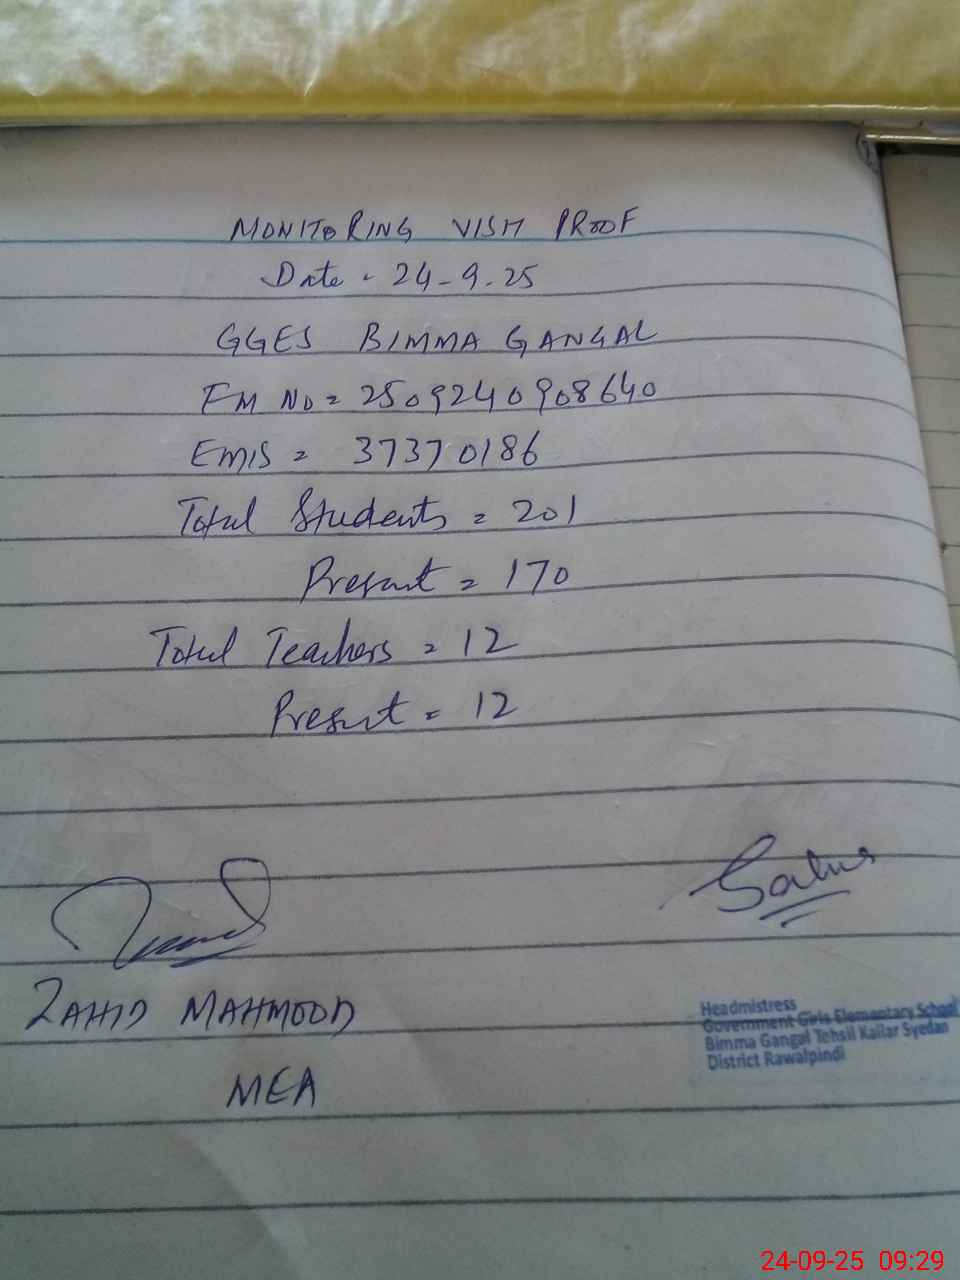 MONITORING VISIT PROOF
Date - 24-9-25
GGES BIMMA GANGAL
FM NO = 2509240908640
EMIS = 37370186
Total Students = 201
Present = 170
Total Teachers = 12
Present = 12
ZAHID MAHMOOD
MEA
Headmistress
Government Girls Elementary School
Bimma Gangal Tehsil Kallar Syedan
District Rawalpindi
24-09-25 09:29